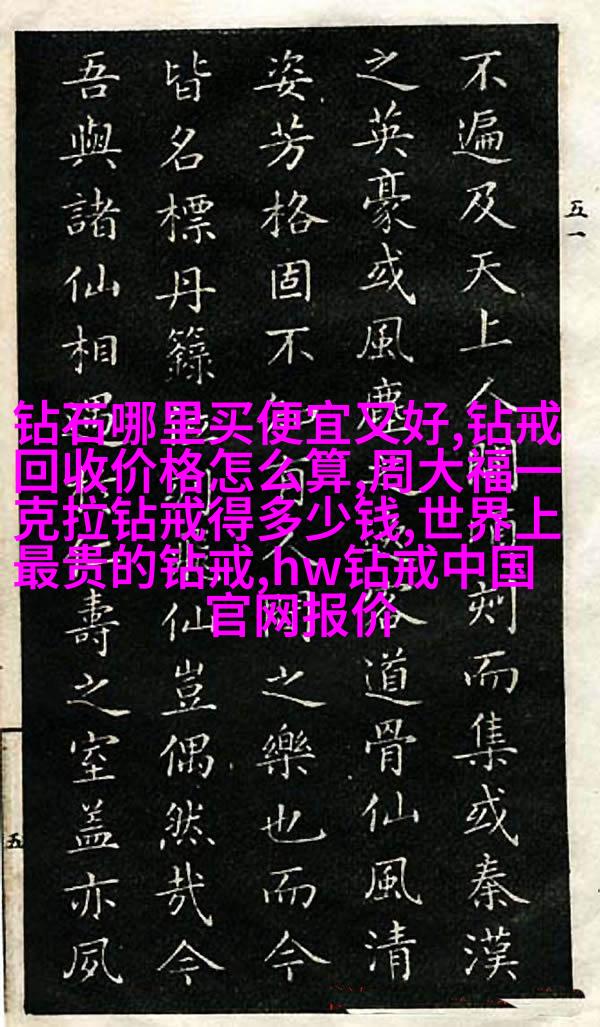 五一
不遍及天上人間刻而集或秦漢
之英豪或風塵客道骨仙風清
姿芳格固不知有人間之樂也而今
皆名標丹籙仙豈偶然哉今
吾與諸仙相遇壽之室蓋亦夙
五
钻石哪里买便宜又好,钻戒
回收价格怎么算,周大福一
克拉钻戒得多少钱,世界上
最贵的钻戒,hw钻戒中国
官网报价